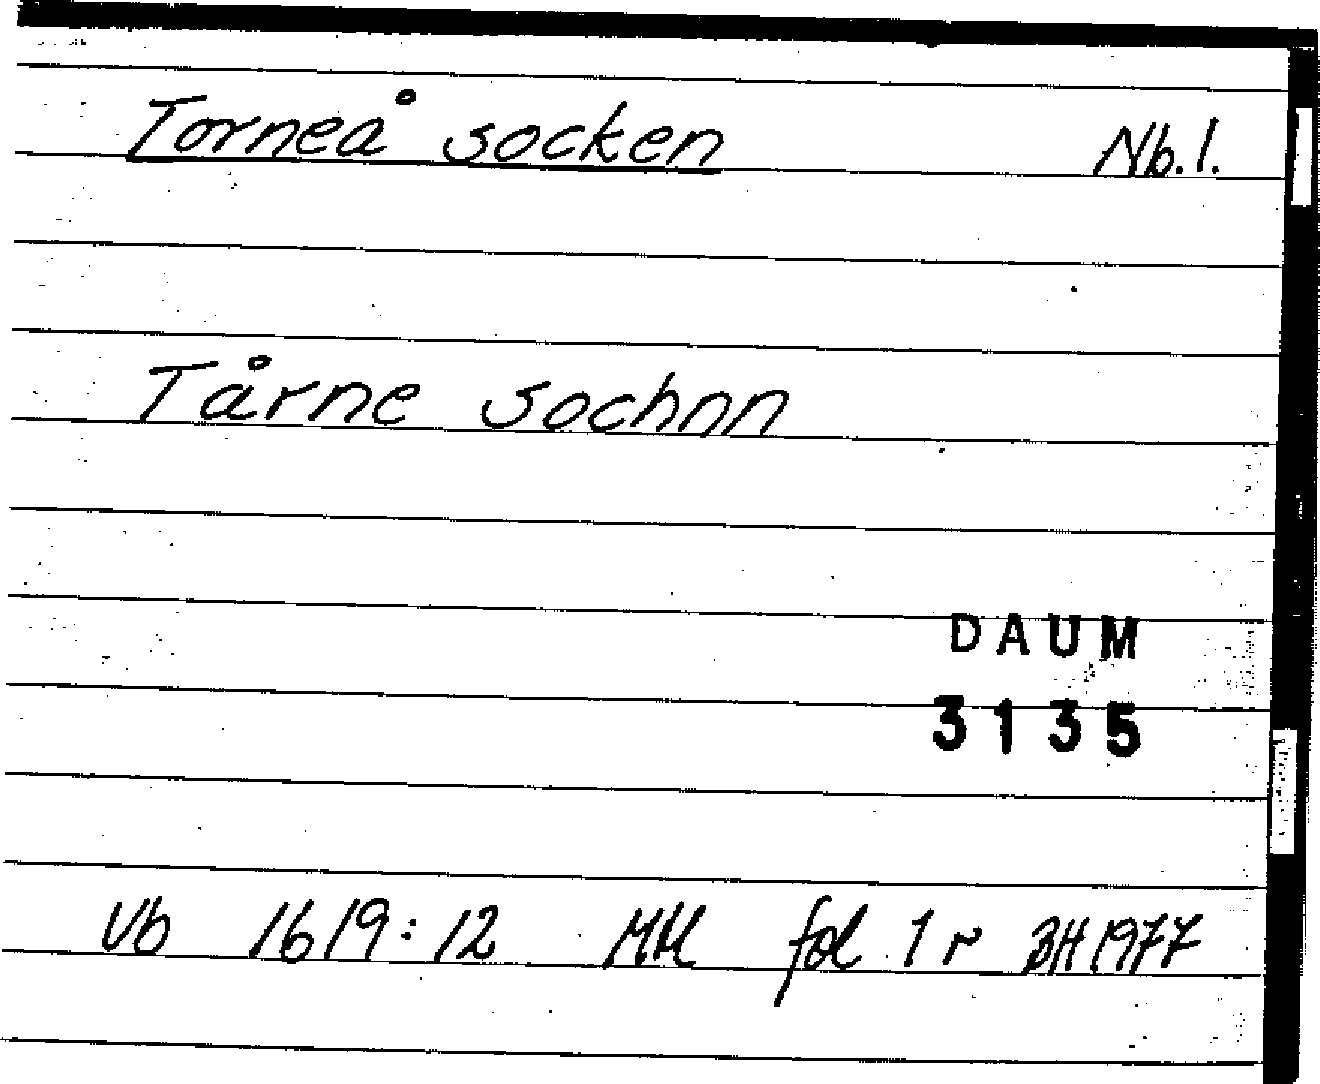 Torneå socken Nb.l.
Tårne sochnn
DAUM
3135
Vb 1619:12 MH fol 1 r BH 1977